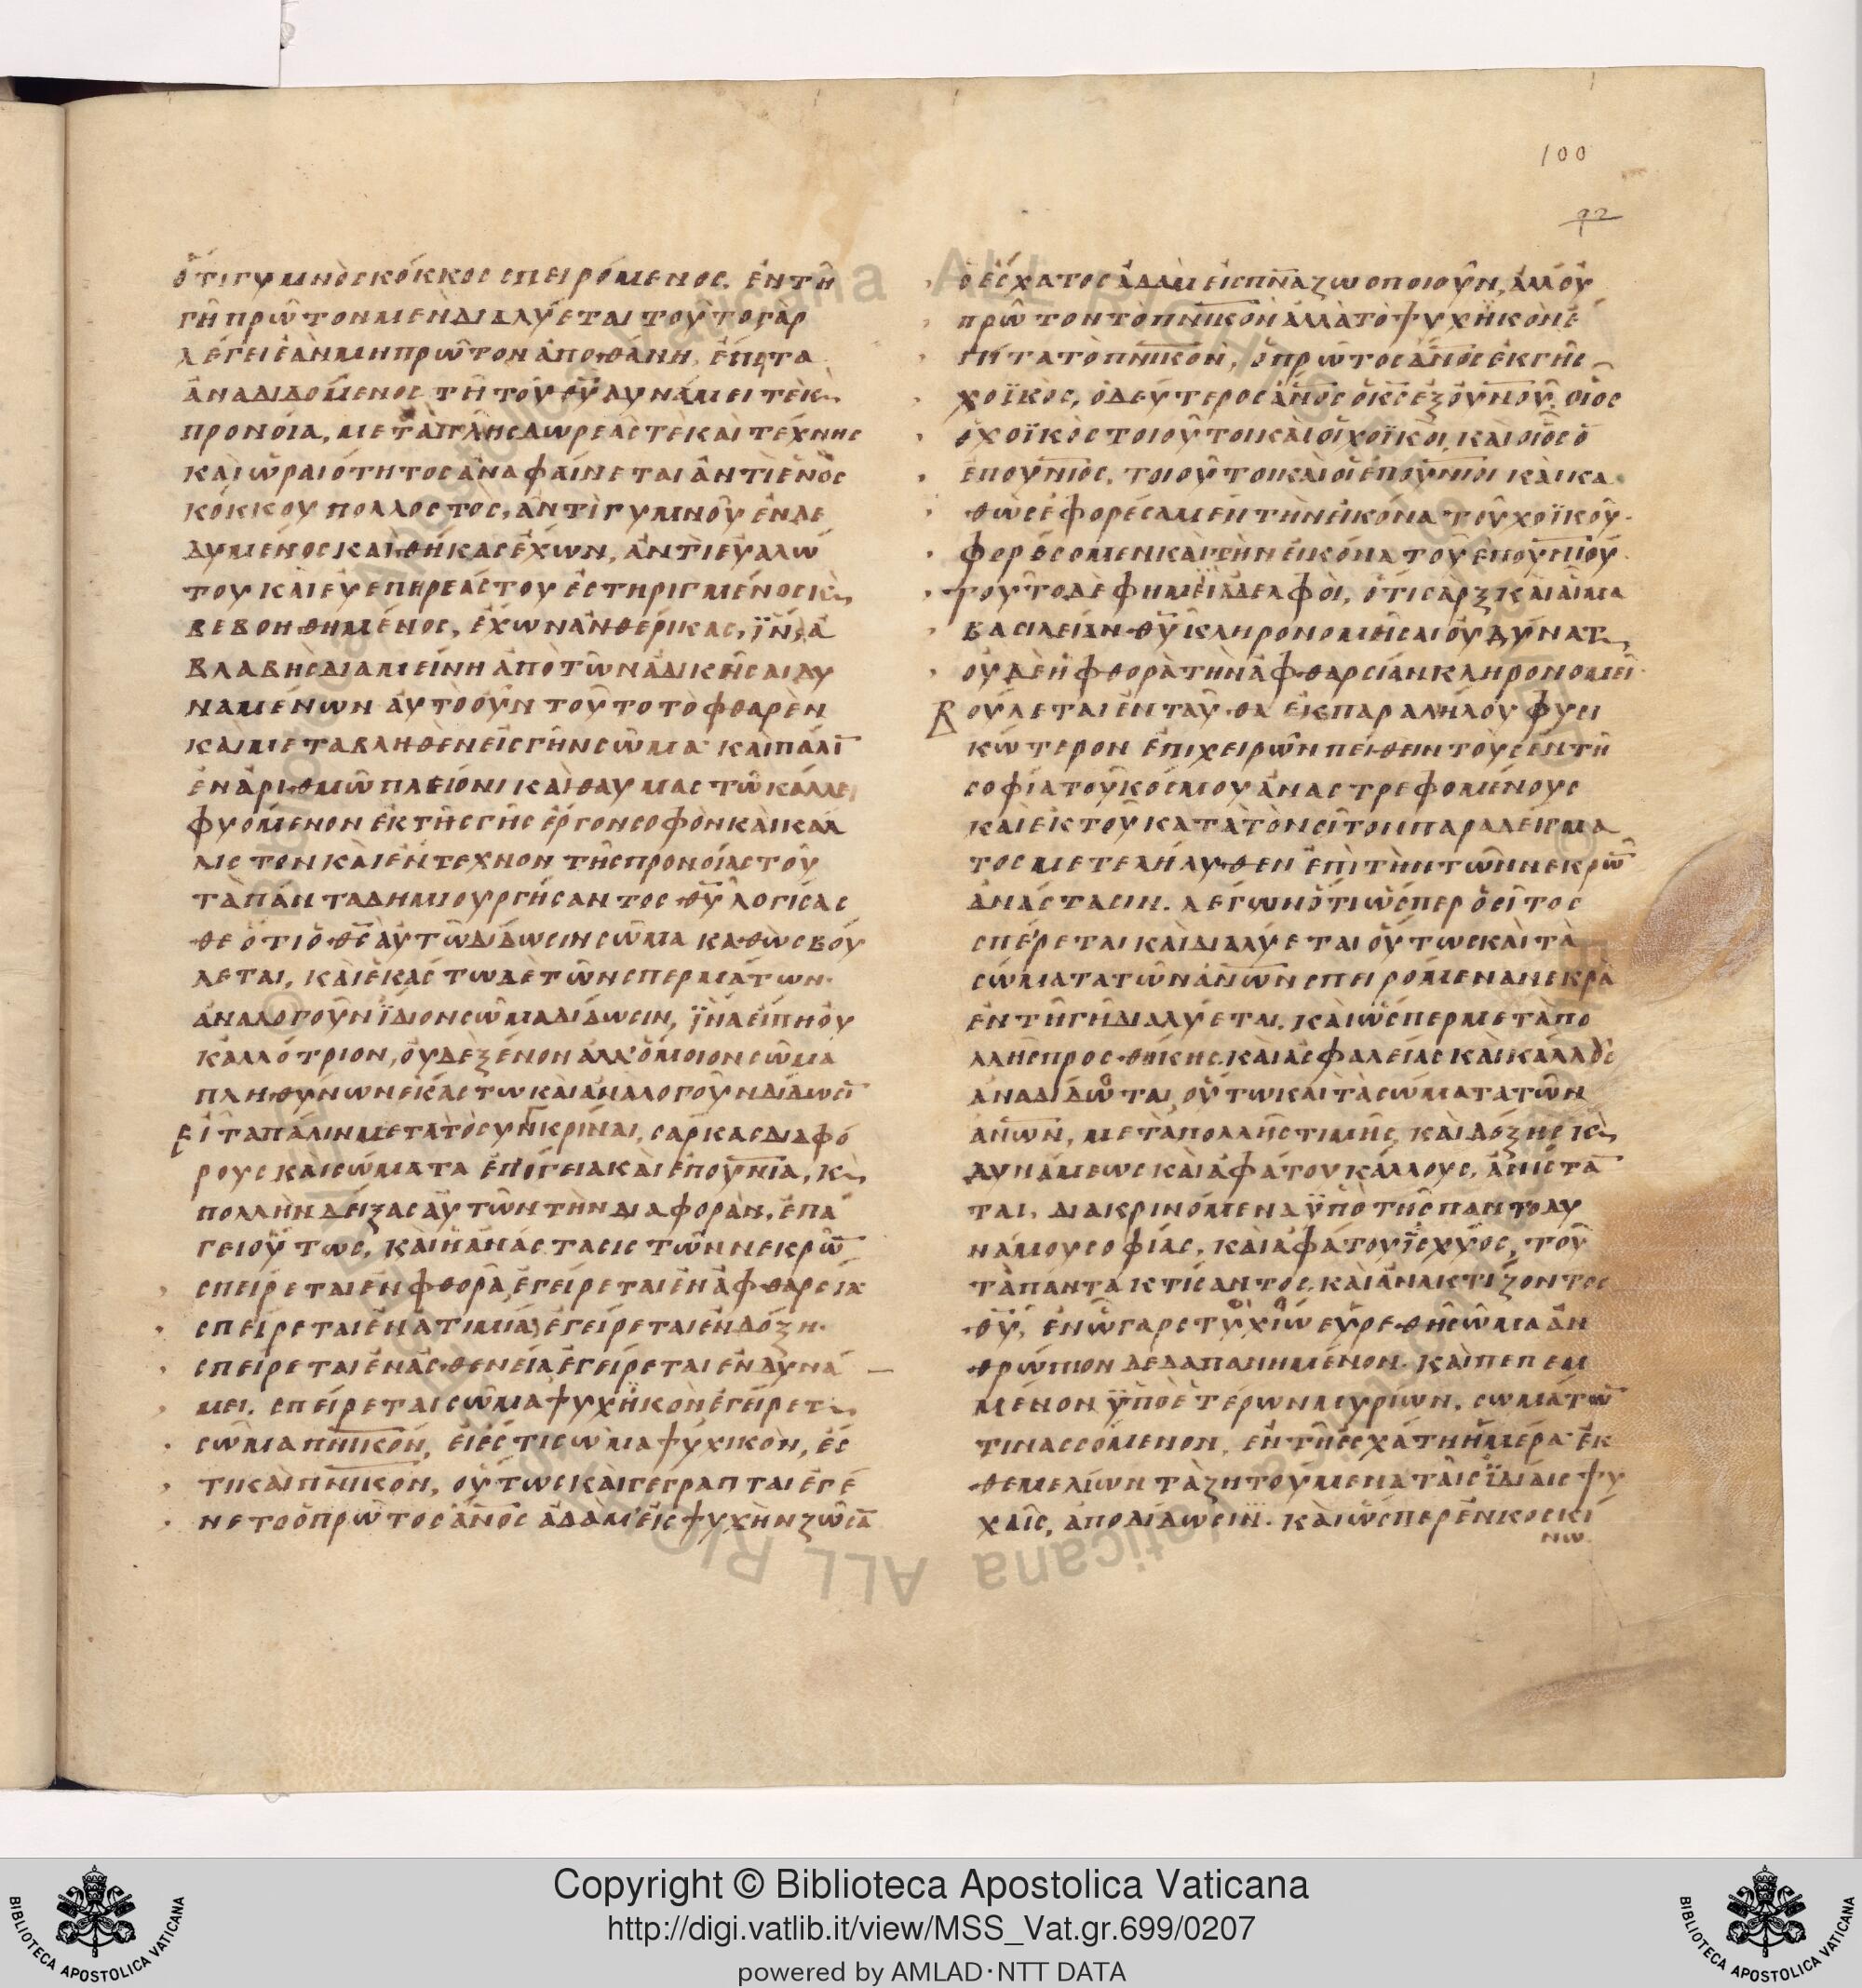 100
92
ὅτι γυμνὸς κόκκος σπειρόμενος, ἐν τῆ
γῆ πρῶτον μὲν διαλύεται τοῦτο γὰρ
λέγει ἐὰν μὴ πρῶτον ἀποθάνη, ἔπιτα
ἀναδιδόμενος τῆ τοῦ θῦ δυνάμει τὲ κ
προνοία, μετὰ πλης δωρεᾶς τὲ καὶ τέχνης
καὶ ὡραιότητος ἀναφαίνεται ἀντὶ ἑνὸς
κόκκου πολλοστος, ἀντὶ γυμνοῦ ἐνδε
δυμένος καὶ θήκας ἔχων, ἀντὶ εὐαλώ
του καὶ εὐεπηρεάστου ἐστηριγμένος κ
βεβοηθημένος, ἔχων ἀνθέρικας, ἵν, ἀ
βλαβὴς διαμείνη ἀπὸ τῶν ἀδικῆσαι δυ
ναμένων αὐτὸ οὖν τοῦτο τὸ φθαρὲν
καὶ μεταβληθὲν εἰς γῆν σῶμα καὶ πάλῑ
ἐν ἀριθμῶ πλείονι καὶ θαυμαστῶ κάλλει
φυόμενον ἐκ τῆς γῆς ἔργον σοφὸν καὶ καλ
λιστον καὶ ἔντεχνον τῆς προνοίας τοῦ
τὰ πάντα δημιουργήσαντος θῦ λογίσασ
θε ὅτι ὁ θς αὐτῶ δίδωσιν σῶμα καθὼς βού
λεται, καὶ ἑκάστω δὲ τῶν σπερμάτων
ἀναλογοῦν ἴδιον σῶμα δίδωσιν, ἵνα εἴπη οὐ
κ ἀλλότριον, οὐδε ξένον ἀλλ' ὅμοιον σῶμα
πληθύνων ἑκάστω καὶ ἀναλογοῦν δίδωσῑ
εἶτα πάλιν μετὰ τὸ συνκρίναι, σάρκας διαφό
ρους καὶ σώματα ἐπίγεια καὶ ἐπουνια, κ
πολλὴν δείξας αὐτῶν τὴν διαφορὰν, ἐπά
γει οὕτως, καὶ ἡ ἀνάστασις τῶν νεκρῶ̄
σπείρεται ἐν φθορᾶ, ἐγείρεται ἐν ἀφθαρσία
σπείρεται ἐν ἀτιμία, ἐγείρεται ἐν δόξη
σπείρεται ἐν ἀσθενεία ἐγείρεται ἐν δυνά
μει. σπείρεται σῶμα ψυχϊκὸν ἐγείρετ
σῶμα πνικόν, εἰ ἐστι σῶμα ψυχικὸν, ἐσ
τι καὶ πνικόν, οὕτως καὶ γέγραπται ἐγέ
νετο ὁ πρῶτος ἀνος ἀδὰμ εἰς ψυχὴν ζῶσᾱ
ὁ ἔσχατος ἀδὰμ εἰς πνα ζωοποιοῦν, ἀλλ' οὐ
πρῶτον τὸ πνικὸν ἀλλὰ τὸ ψυχϊκὸν ἔ
πιτα τὸ πνικὸν, ὁ πρῶτος ἀνος ἐκ γῆς
χοϊκὸς, ὁ δεύτερος ἀνος ὁ κς ἐξ οὐνοῦ, οἷος
ὁ χοϊκὸς τοιοῦτοι καὶ οἱ χοϊκοὶ, καὶ οἷος ὁ
ἐπουνιος, τοιοῦτοι καὶ οἱ ἐπουνιοι καὶ κα
θὼς ἐφορέσαμεν τὴν εἰκόνα τοῦ χοϊκοῦ
φορέσομεν καὶ τὴν εἰκόνα τοῦ ἐπουνιου
τοῦτο δέ φημεϊ ἀδελφοὶ, ὅτι σὰρξ καὶ αἷμα
βασιλείαν θῦ κληρονομῆσαι οὐ δύνατ
οὐδὲ ἡ φθορὰ τὴν ἀφθαρσίαν κληρονομεῖ
βούλεται ἐνταῦθα ἐκ παραλήλου φυσι
κώτερον ἐπιχειρῶν πείθειν τοὺς ἐν τῆ
σοφία τοῦ κόσμου ἀναστρεφομένους
καὶ ἐκ τοῦ κατὰ τὸν σῖτον παραδείγμα
τος μετελήλυθεν ἐπὶ τὴν τῶν νεκρῶ̄
ἀνάστασιν. λέγων ὅτι ὥσπερ ὁ σῖτος
σπέρεται καὶ διαλύεται οὕτως καὶ τὰ
σώματα τῶν ἀνων σπειρόμενα νεκρὰ
ἐν τῆ γῆ διαλύεται. καὶ ὥσπερ μετὰ πο
λλῆς προσθήκης καὶ ἀσφαλείας καὶ κάλλους
ἀναδίδοται, οὕτω καὶ τὰ σώματα τῶν
ἀνων, μετὰ πολλῆς τιμῆς καὶ δόξης κ
δυνάμεως καὶ ἀφάτου κάλλους, ἀνίστα
ται, διακρινόμενα ὑπὸ τῆς παντοδυ
νάμου σοφίας, καὶ ἀφάτου ἰσχύος, τοῦ
τὰ πάντα κτίσαντος, καὶ ἀνακτίζοντος
θῦ, ἐν ὧ γαρ στυχίω εὑρεθῆ σῶμα ἀν
θρώπιον δεδαπανημένον. καὶ πεπεμ
μένον ὑπὸ ἑτέρων μυρίων. σωμάτω̄
τινασσόμενον, ἐν τῆ ἐσχάτη ἡμέρα ἐκ
θεμελίων τὰ ζητούμενα ταῖς ἰδίαις ψυ
χαῖς, ἀποδίδωσιν. καὶ ὥσπερ ἐν κοσκί
νω
Copyright © Biblioteca Apostolica Vaticana
http://digi.vatlib.it/view/MSS_Vat.gr.699/0207
powered by AMLAD·NTT DATA
BIBLIOTECA APOSTOLICA VATICANA
BIBLIOTECA APOSTOLICA VATICANA